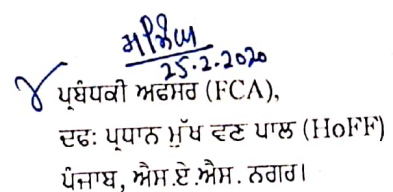 25.2.2020
ਪ੍ਰਬੰਧਕੀ ਅਫਸਰ (FCA),
ਦਫ: ਪ੍ਰਧਾਨ ਮੁੱਖ ਵਣ ਪਾਲ (HoFF)
ਪੰਜਾਬ, ਐਸ.ਏ.ਐਸ. ਨਗਰ।